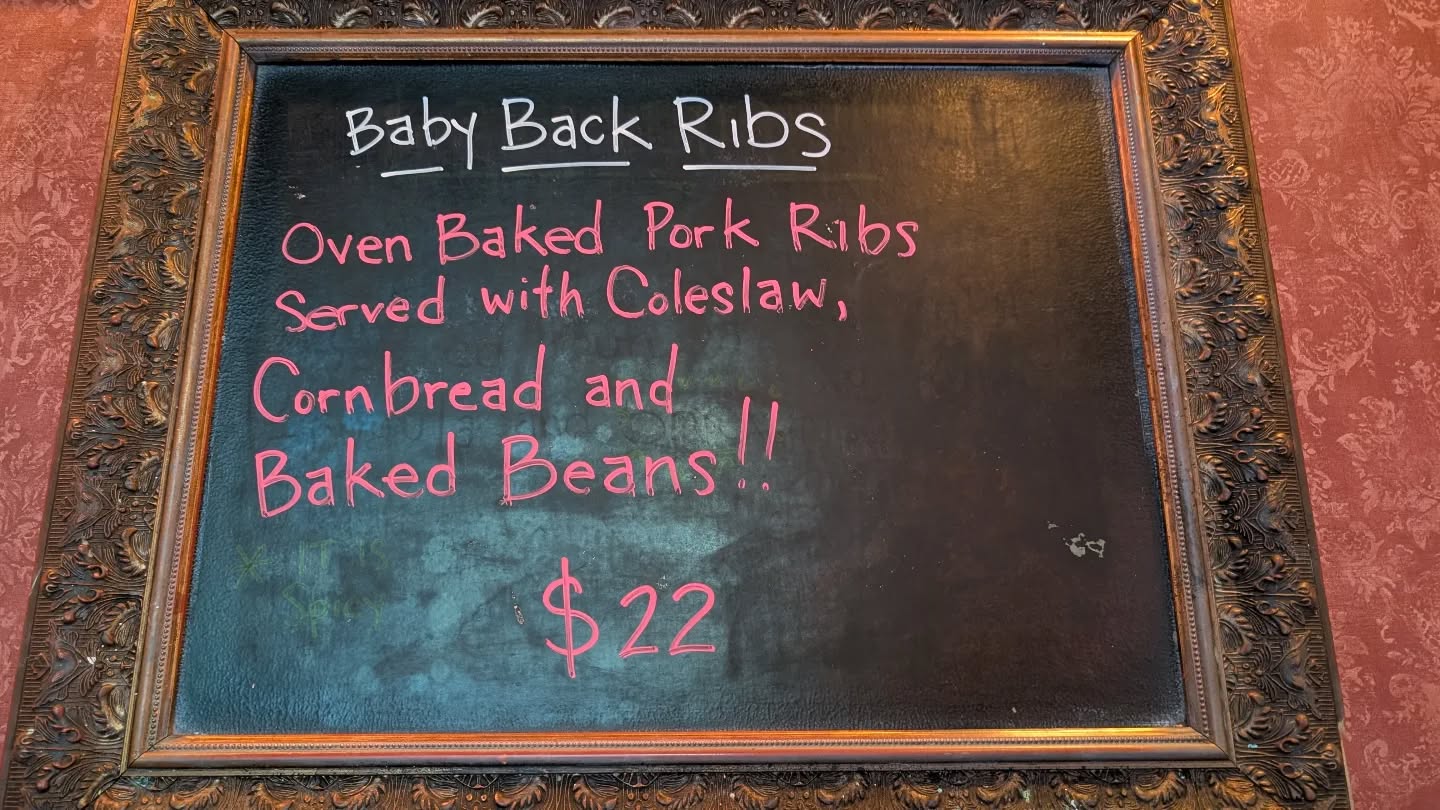 Baby Back Ribs
Oven Baked Pork Ribs
Served with Coleslaw,
Cornbread and
Baked Beans!!
* IT is
Spicy
$22